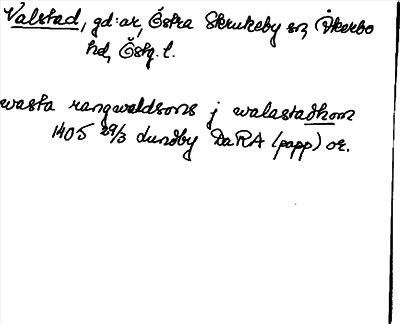 Valstad, gd:ar, Östra Skrukeby sn, Åkerbo
hd, Östg. l.
wasta rangwaldsons j walastadhom
1405 29/3 Lundby DaRA (papp) or.